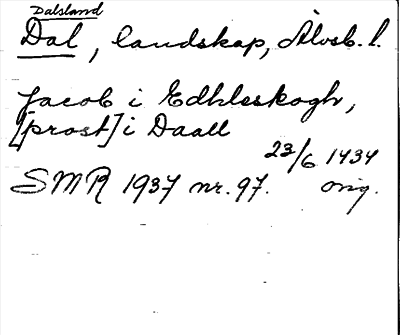 Dalsland
Dal, landskap, Älvsb. l.
Jacob i Edhleskogh,
[prost] i Daall
23/6 1434
SMR 1937 nr. 97. orig.